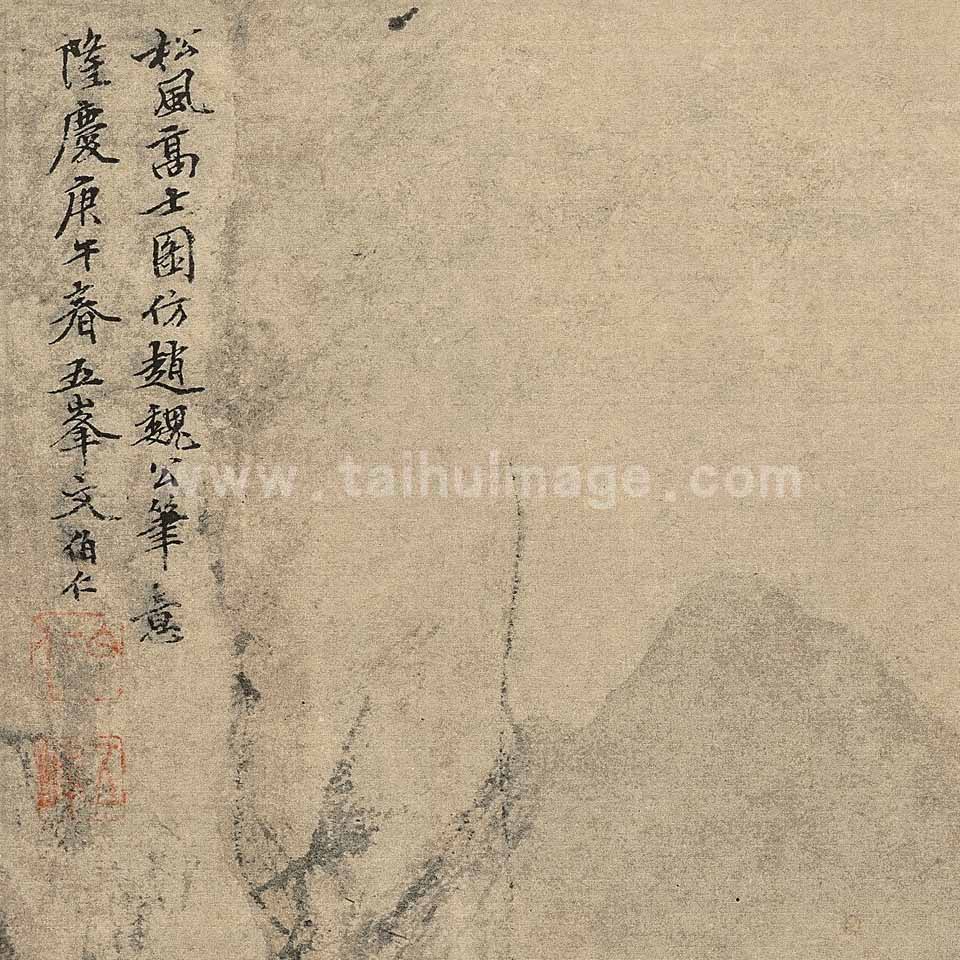 松風高士圖仿趙魏公筆意
隆慶庚午春五峯文伯仁
www.taihuimage.com